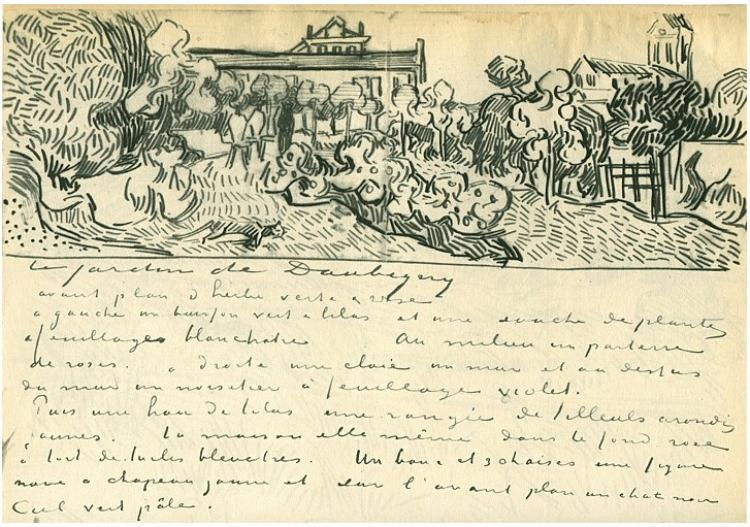 Le jardin de Daubigny
avant plan d'herbe verte & rose
a gauche un buisson vert & lilas et une souche de plantes
a feuillages blanchatre Au milieu un parterre
de roses. a droite une claie un mur et au dessus
du mur un noisetier à feuillage violet.
Puis une haie de lilas une rangée de tilleuls arrondis
jaunes. La maison elle même dans le fond rose
à toit de tuiles bleuatres. Un banc et 3 chaises une figure
noire a chapeau jaune et sur l'avant plan un chat noir
Ciel vert pâle.